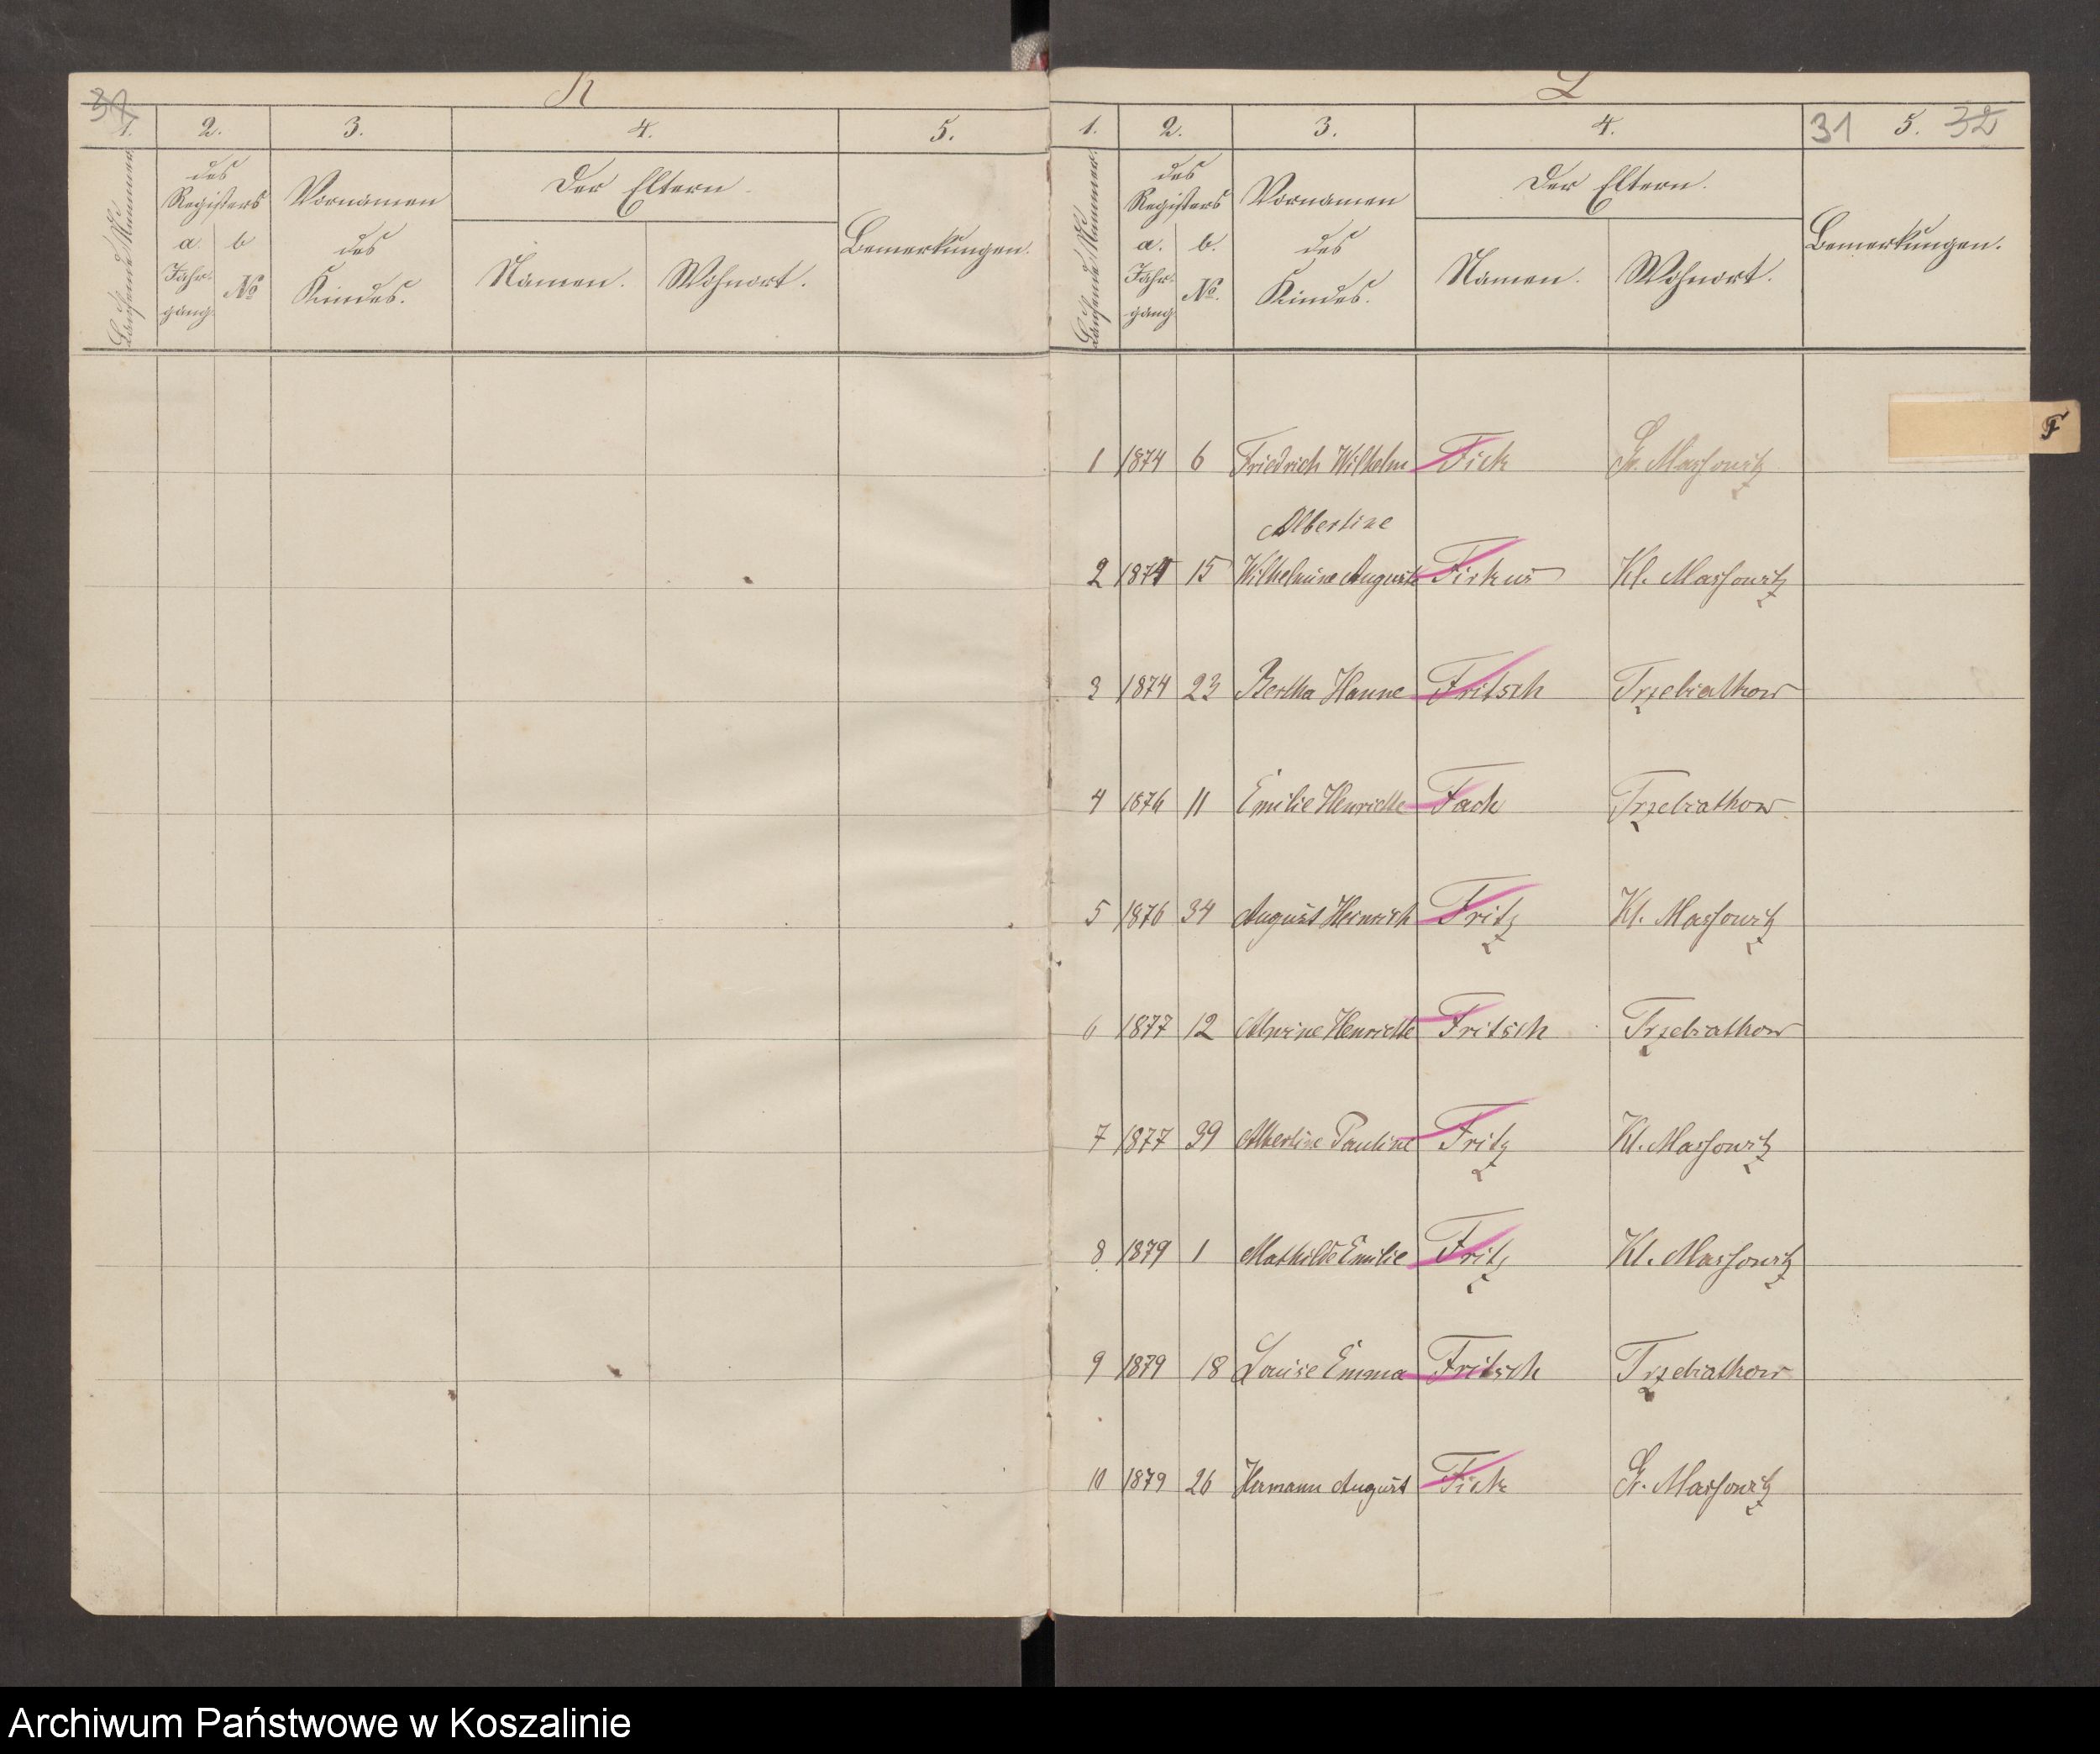 K
1. 2. 3. 4. 5.
Laufende Nummer.
des
Registers
a. b
Jahr-
gang. №
Vornamen
des
Kindes.
Der Eltern.
Namen. Wohnort.
Bemerkungen.
1. 2. 3. 4. 31 5. 32
Laufende Nummer.
des
Registers
a. b.
Jahr-
gang №.
Vornamen
des
Kindes.
Der Eltern.
Namen. Wohnort.
Bemerkungen.
F
1 1874 6 Friedrich Wilhelm Fick Gr. Massowitz
Albertine
2 1874 15 Wilhelmine Auguste Firkus Kl. Massowitz
3 1874 23 Bertha Hanne Fritsch Trzebiatkow
4 1876 11 Emilie Henriette Fack Trzebiatkow
5 1876 34 August Heinrich Fritz Kl. Massowitz
6 1877 12 Alwine Henriette Fritsch Trzebiatkow
7 1877 39 Albertine Pauline Fritz Kl. Massowitz
8 1879 1 Mathilde Emilie Fritz Kl. Massowitz
9 1879 18 Louise Emma Fritsch Trzebiatkow
10 1879 26 Hermann August Fick Gr. Massowitz
Archiwum Państwowe w Koszalinie